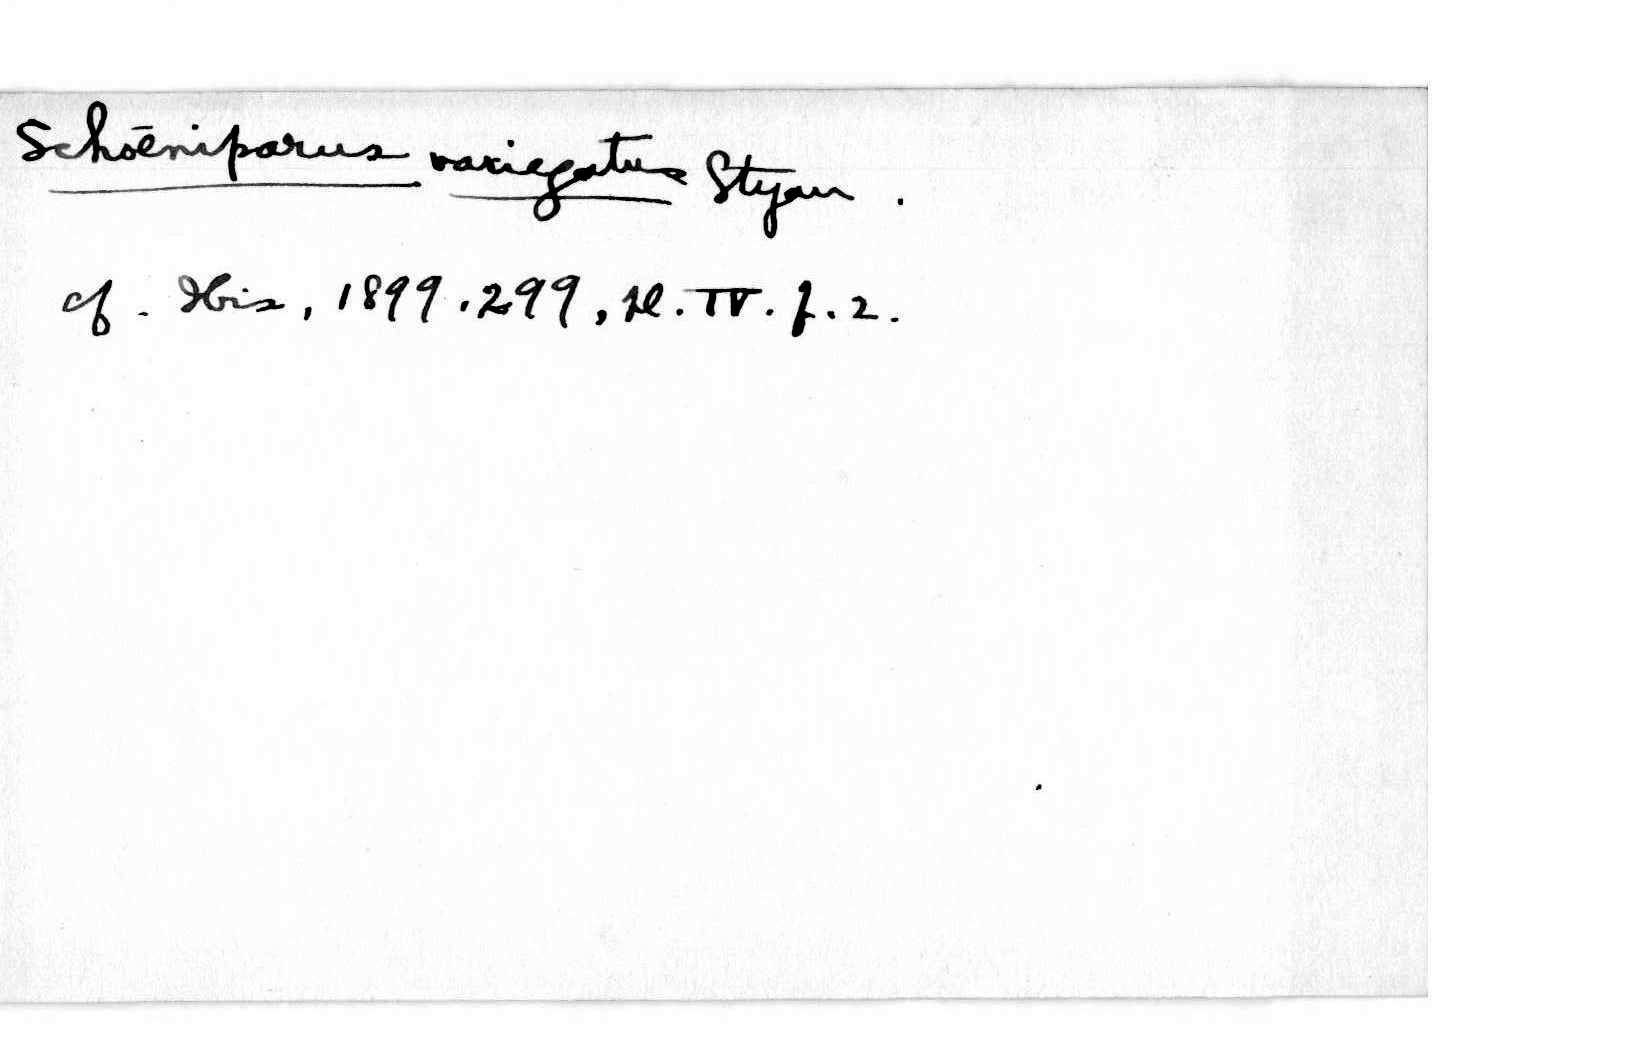 Schōeniparus variegatus Styan.
cf. Ibis, 1899.299, pl. IV. f. 2.